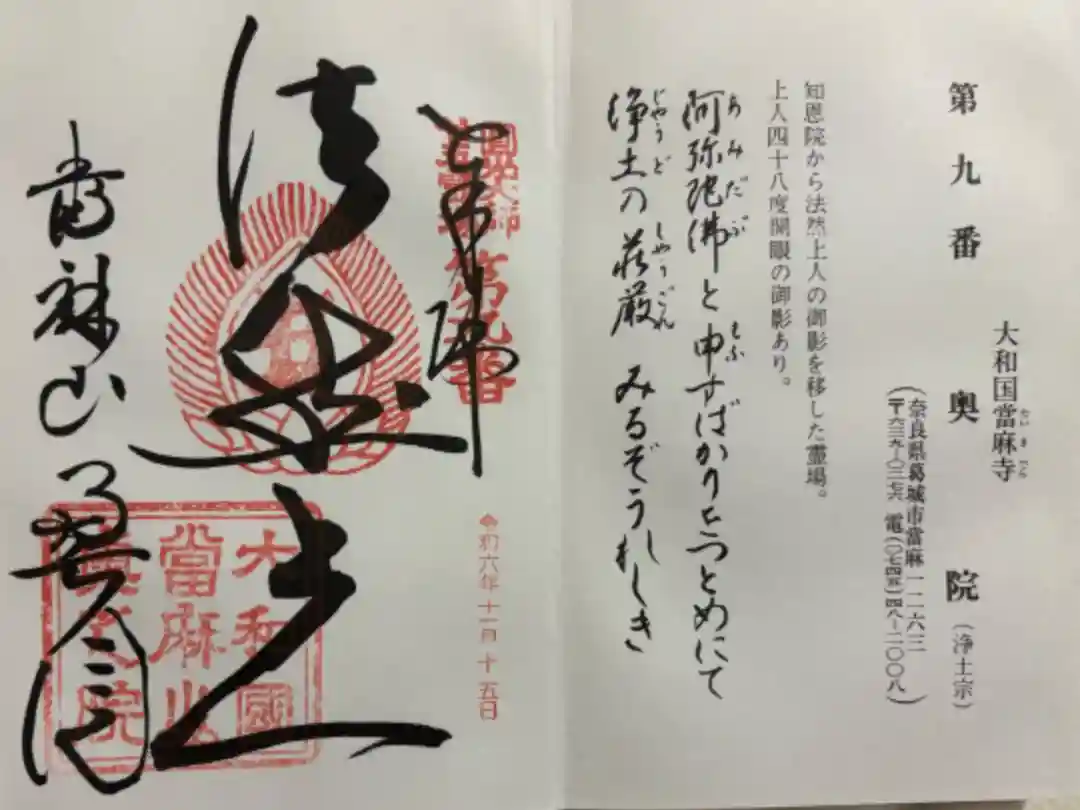 大和国當麻寺
たいまでら
第九番 奥院(浄土宗)
(奈良県葛城市當麻一二六三
〒六三九-〇二七六 電(〇七四五)四八-二〇〇八)
知恩院から法然上人の御影を移した霊場。
上人四十八度開眼の御影あり。
あみだぶ もふ
阿弥陀佛と申すばかりをつとめにて
じやうど しやうごん
浄土の荘厳みるぞうれしき
奉拝
圓光大師
霊場第九番
令和六年十一月十五日
法然上人
大和國
當麻山
奥之院
當麻山 奥院